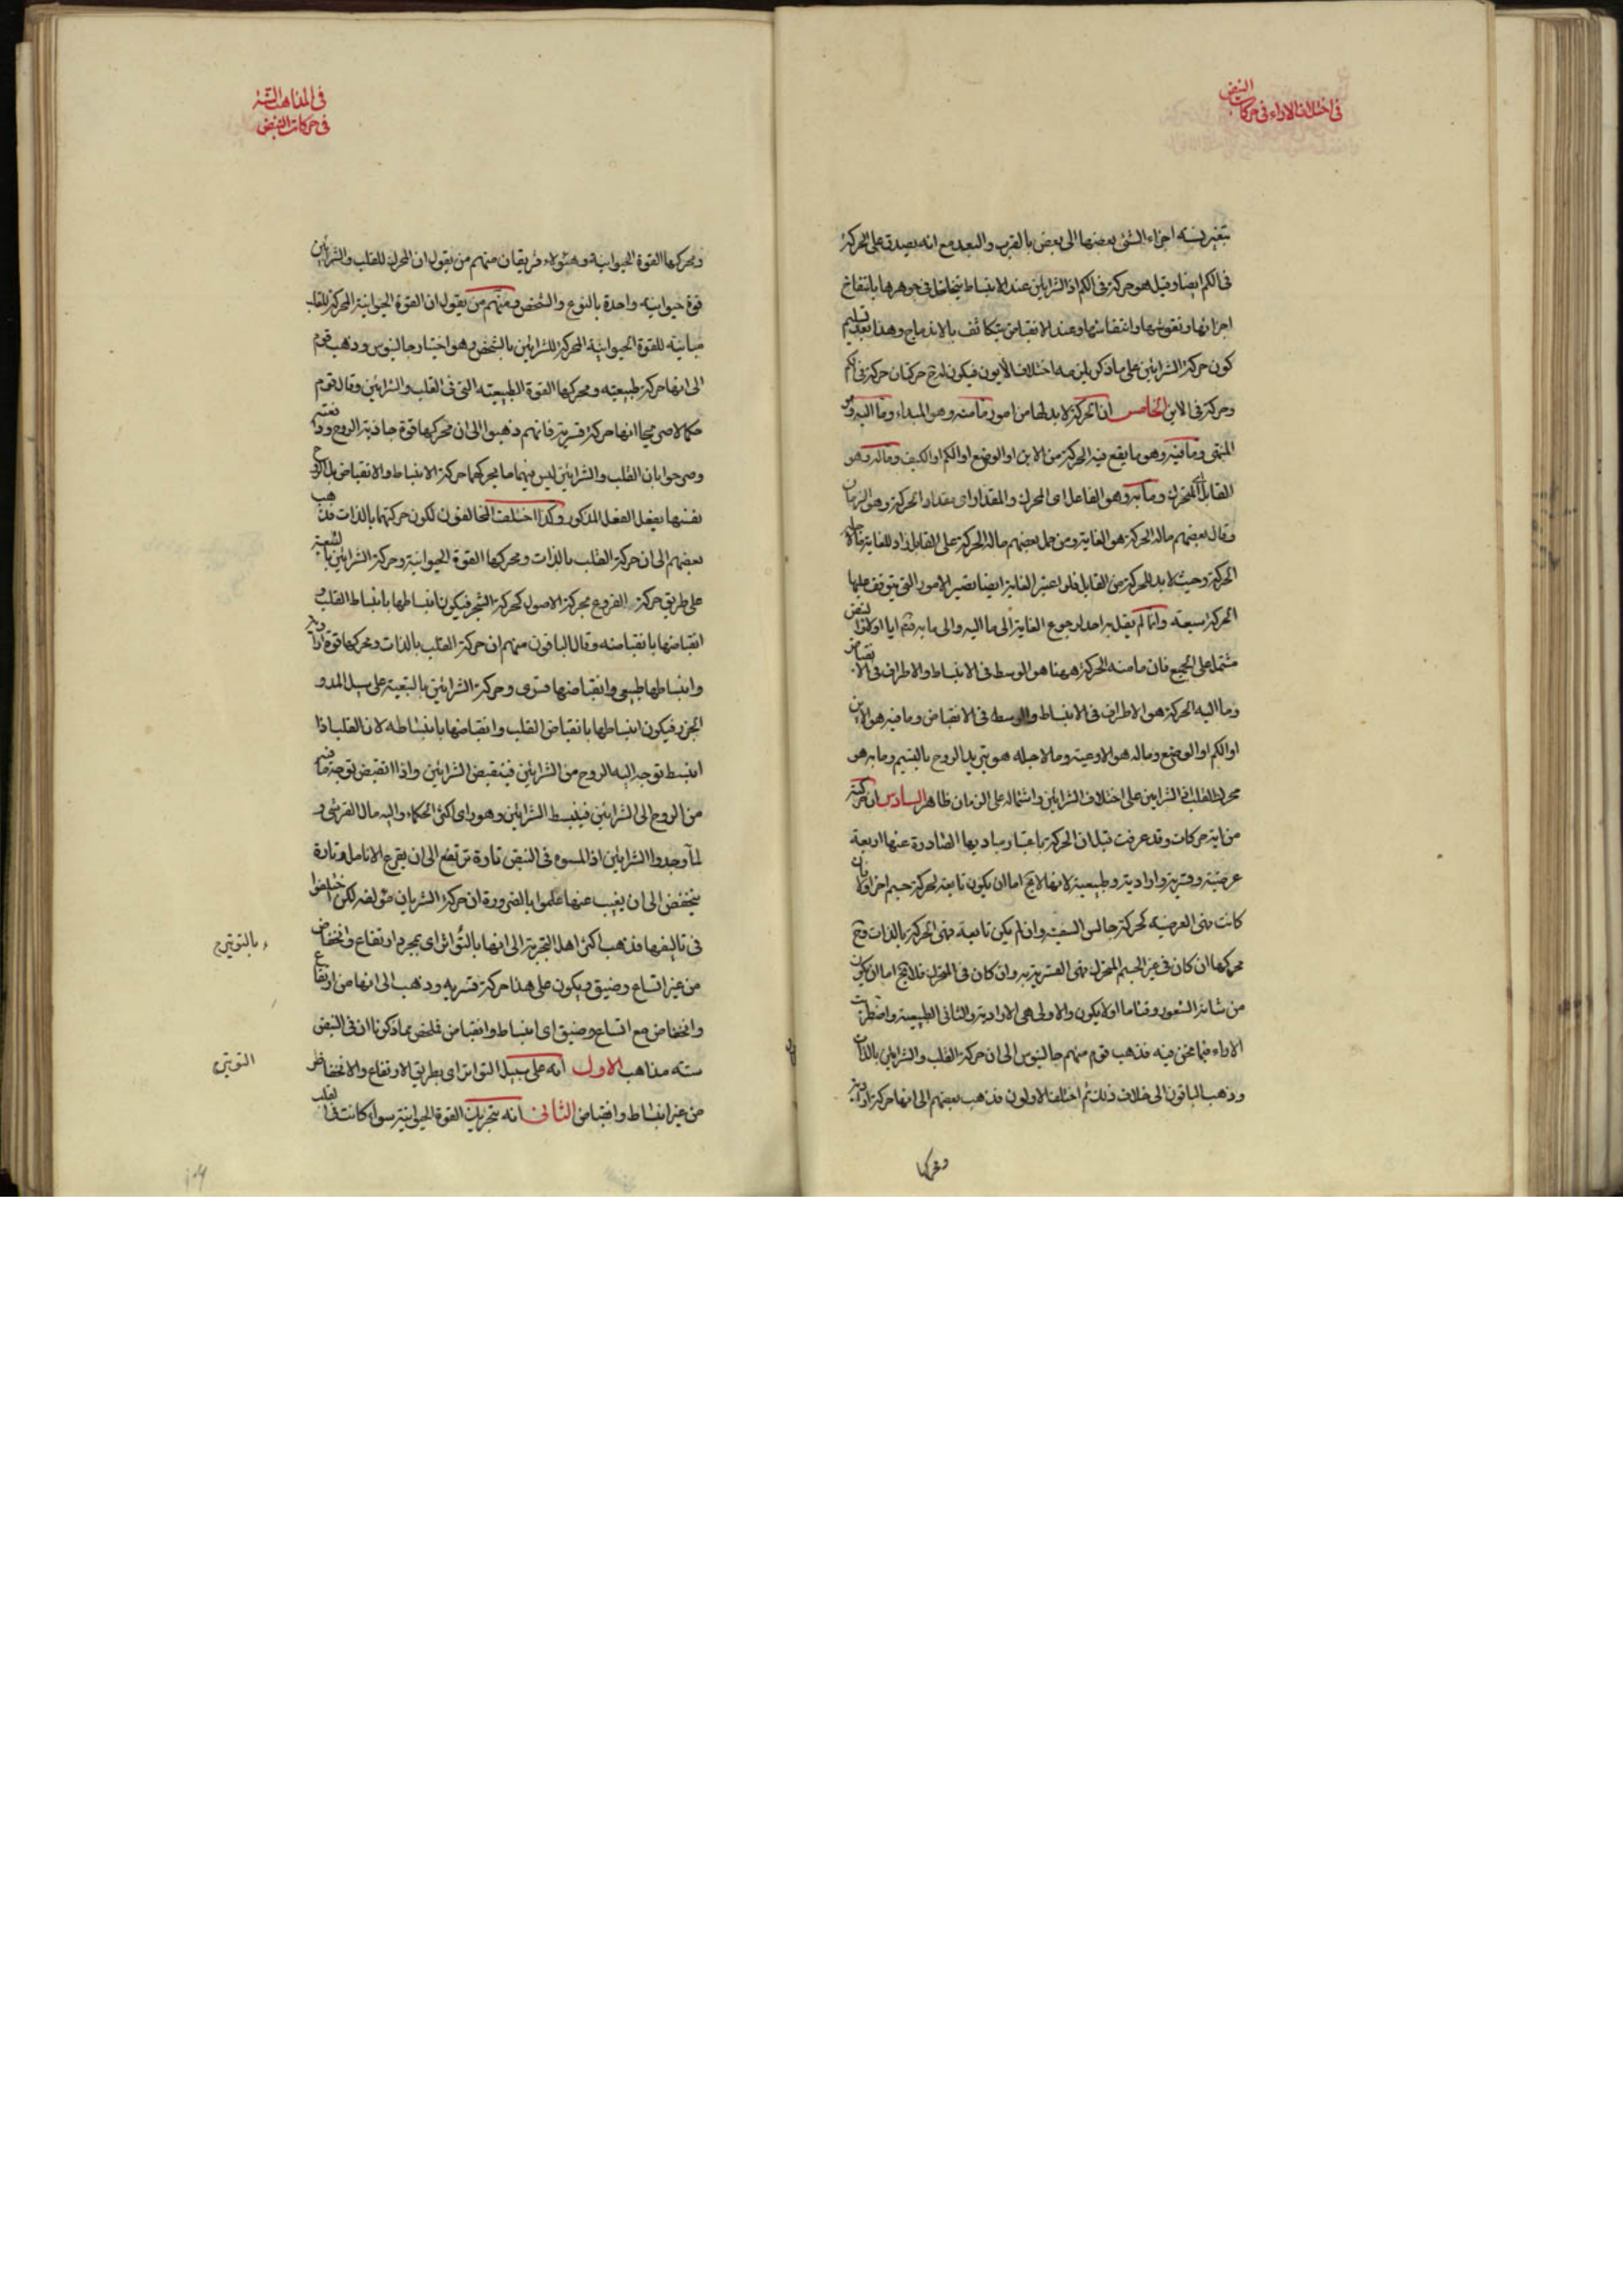 فى اختلاف الاراء فى حركات النبض
بتغير نسبة اجزاء الشئ بعضها الى بعض بالقرب والبعد مع انه يصدق على الحركة
فى الكم ايضا وقيل هو حركة فى الكم اذ الشرايين عند الانبساط يتخلخل فى جوهرها بانتفاخ
اجزائها وعند الانقباض يتكاثف بالاندماج وهذا بعد تسليم
كون حركة الشرايين على ما ذكر يلزمه اختلاف الأيون فيكون لدخ حركتان حركة فى الكم
وحركة فى الاين الخامس ان الحركة لا بد لها من امور ما منه وهو المبداء وما اليه وهو
المنتهى وما فيه وهو ما يقع فيه الحركة من الاين او الوضع او الكم او الكيف وما له وهو
القابل اى المتحرك وما به وهو الفاعل اى المحرك والمقدار اى مقدار الحركة وهو الزمان
وقال بعضهم ما له الحركة هو الغاية ومن حمل بعضهم ما له الحركة على القابل زاد للغاية ما لاجله
الحركة وحيث لا بد للحركة من القابل فلو اعتبر الغاية ايضا تصير الامور التى يتوقف عليها
الحركة سبعة وانما لم يقل به احد لرجوع الغاية الى ما اليه والى ما به النبض
مشتملة على الجميع فان ما منه الحركة ههنا هو الوسط فى الانبساط والاطراف فى الانقباض
وما اليه الحركة هو الاطراف فى الانبساط والوسط فى الانقباض وما فيه هو الاين
او الكم او الوضع وما له هو الاوعية وما لاجله هو تبريد الروح بالنسيم وما به هو
محرك القلب او الشرايين على اختلاف الشرايين واشتماله على الزمان ظاهر السادس ان حركته
من اية حركات وقد عرفت قبل ان الحركة باعتبار مباديها الصادرة عنها اربعة
عرضية وقسرية وارادية وطبيعية لانها لا يخ اما ان يكون تابعة لحركة جسم اخر او لا فان
كانت فهى العرضية كحركة جالس السفينة وان لم يكن تابعة فهى الحركة بالذات وح
محركها ان كان فى غير الجسم المتحرك فهى القسرية وان كان فى المتحرك فلا يخ اما ان يكون
من شانه الشعور وقتا ما او لا يكون والاولى هى الارادية والثانى الطبيعية واضطربت
الاراء فيما نحن فيه فذهب قوم منهم جالينوس الى ان حركة القلب والشرايين بالذات
وذهب الباقون الى خلاف ذلك ثم اختلف الاولون فذهب بعضهم الى انها حركة ارادية
ومحركها
فى المذاهب الستة
فى حركات النبض
ومحركها القوة الحيوانية وهؤلاء فريقان منهم من يقول ان المحرك للقلب والشرايين
قوة حيوانية واحدة بالنوع والشخص ومنهم من يقول ان القوة الحيوانية المحركة للقلب
مباينة للقوة الحيوانية المحركة للشرايين بالشخص وهو اختيار جالينوس وذهب قوم
الى انها حركة طبيعية ومحركها القوة الطبيعية التى فى القلب والشرايين وقال قوم
انها حركة قسرية فانهم ذهبوا الى ان محركها قوة جاذبة الروح ودافعته
وصرحوا بان القلب والشرايين ليس فيهما ما يحركهما حركة الانبساط والانقباض بل الروح
نفسها يفعل الفعل المذكور وكذا اختلف المخالفون لكون حركتهما بالذات فذهب
بعضهم الى ان حركة القلب بالذات ومحركها القوة الحيوانية وحركة الشرايين بالتبعية
على طريق حركة الفروع بحركة الاصول كحركة الشجر فيكون انبساطها بانبساط القلب و
انقباضها بانقباضه وقال الباقون منهم ان حركة القلب بالذات ومحركها قوة ارادية
وانبساطها طبيعى وانقباضها قسرى وحركة الشرايين بالتبعية على سبيل المد و
الجزر فيكون انبساطها بانقباض القلب وانقباضها بانبساطه لان القلب اذا
انبسط توجه اليه الروح من الشرايين فينقبض الشرايين واذا انقبض توجه ما فيه
من الروح الى الشرايين فينبسط الشرايين وهو راى اكثر الحكماء واليه مال القرشى و
لما وجدوا الشرايين اذ المسوه فى النبض تارة يرتفع الى ان يقرع الانامل وتارة
ينخفض الى ان يغيب عنها علموا بالضرورة ان حركة الشريان مؤلفه لكن اختلفوا
فى تاليفها فذهب اكثر اهل التجربة الى انها بالتواتر اى بمجرد ارتفاع وانخفاض
من غير اتساع وضيق ويكون على هذا حركة قسريه وذهب الى انها من ارتفاع
وانخفاض مع اتساع وضيق اى انبساط وانقباض فلخص بما ذكرنا ان فى النبض
سته مذاهب الاول انه على سبيل التواتر اى بطريق الارتفاع والانخفاض
من غير انبساط وانقباض الثانى انه بتحريك القوة الحيوانية سواء كانت فى القلب
بالتوتير
التوتير